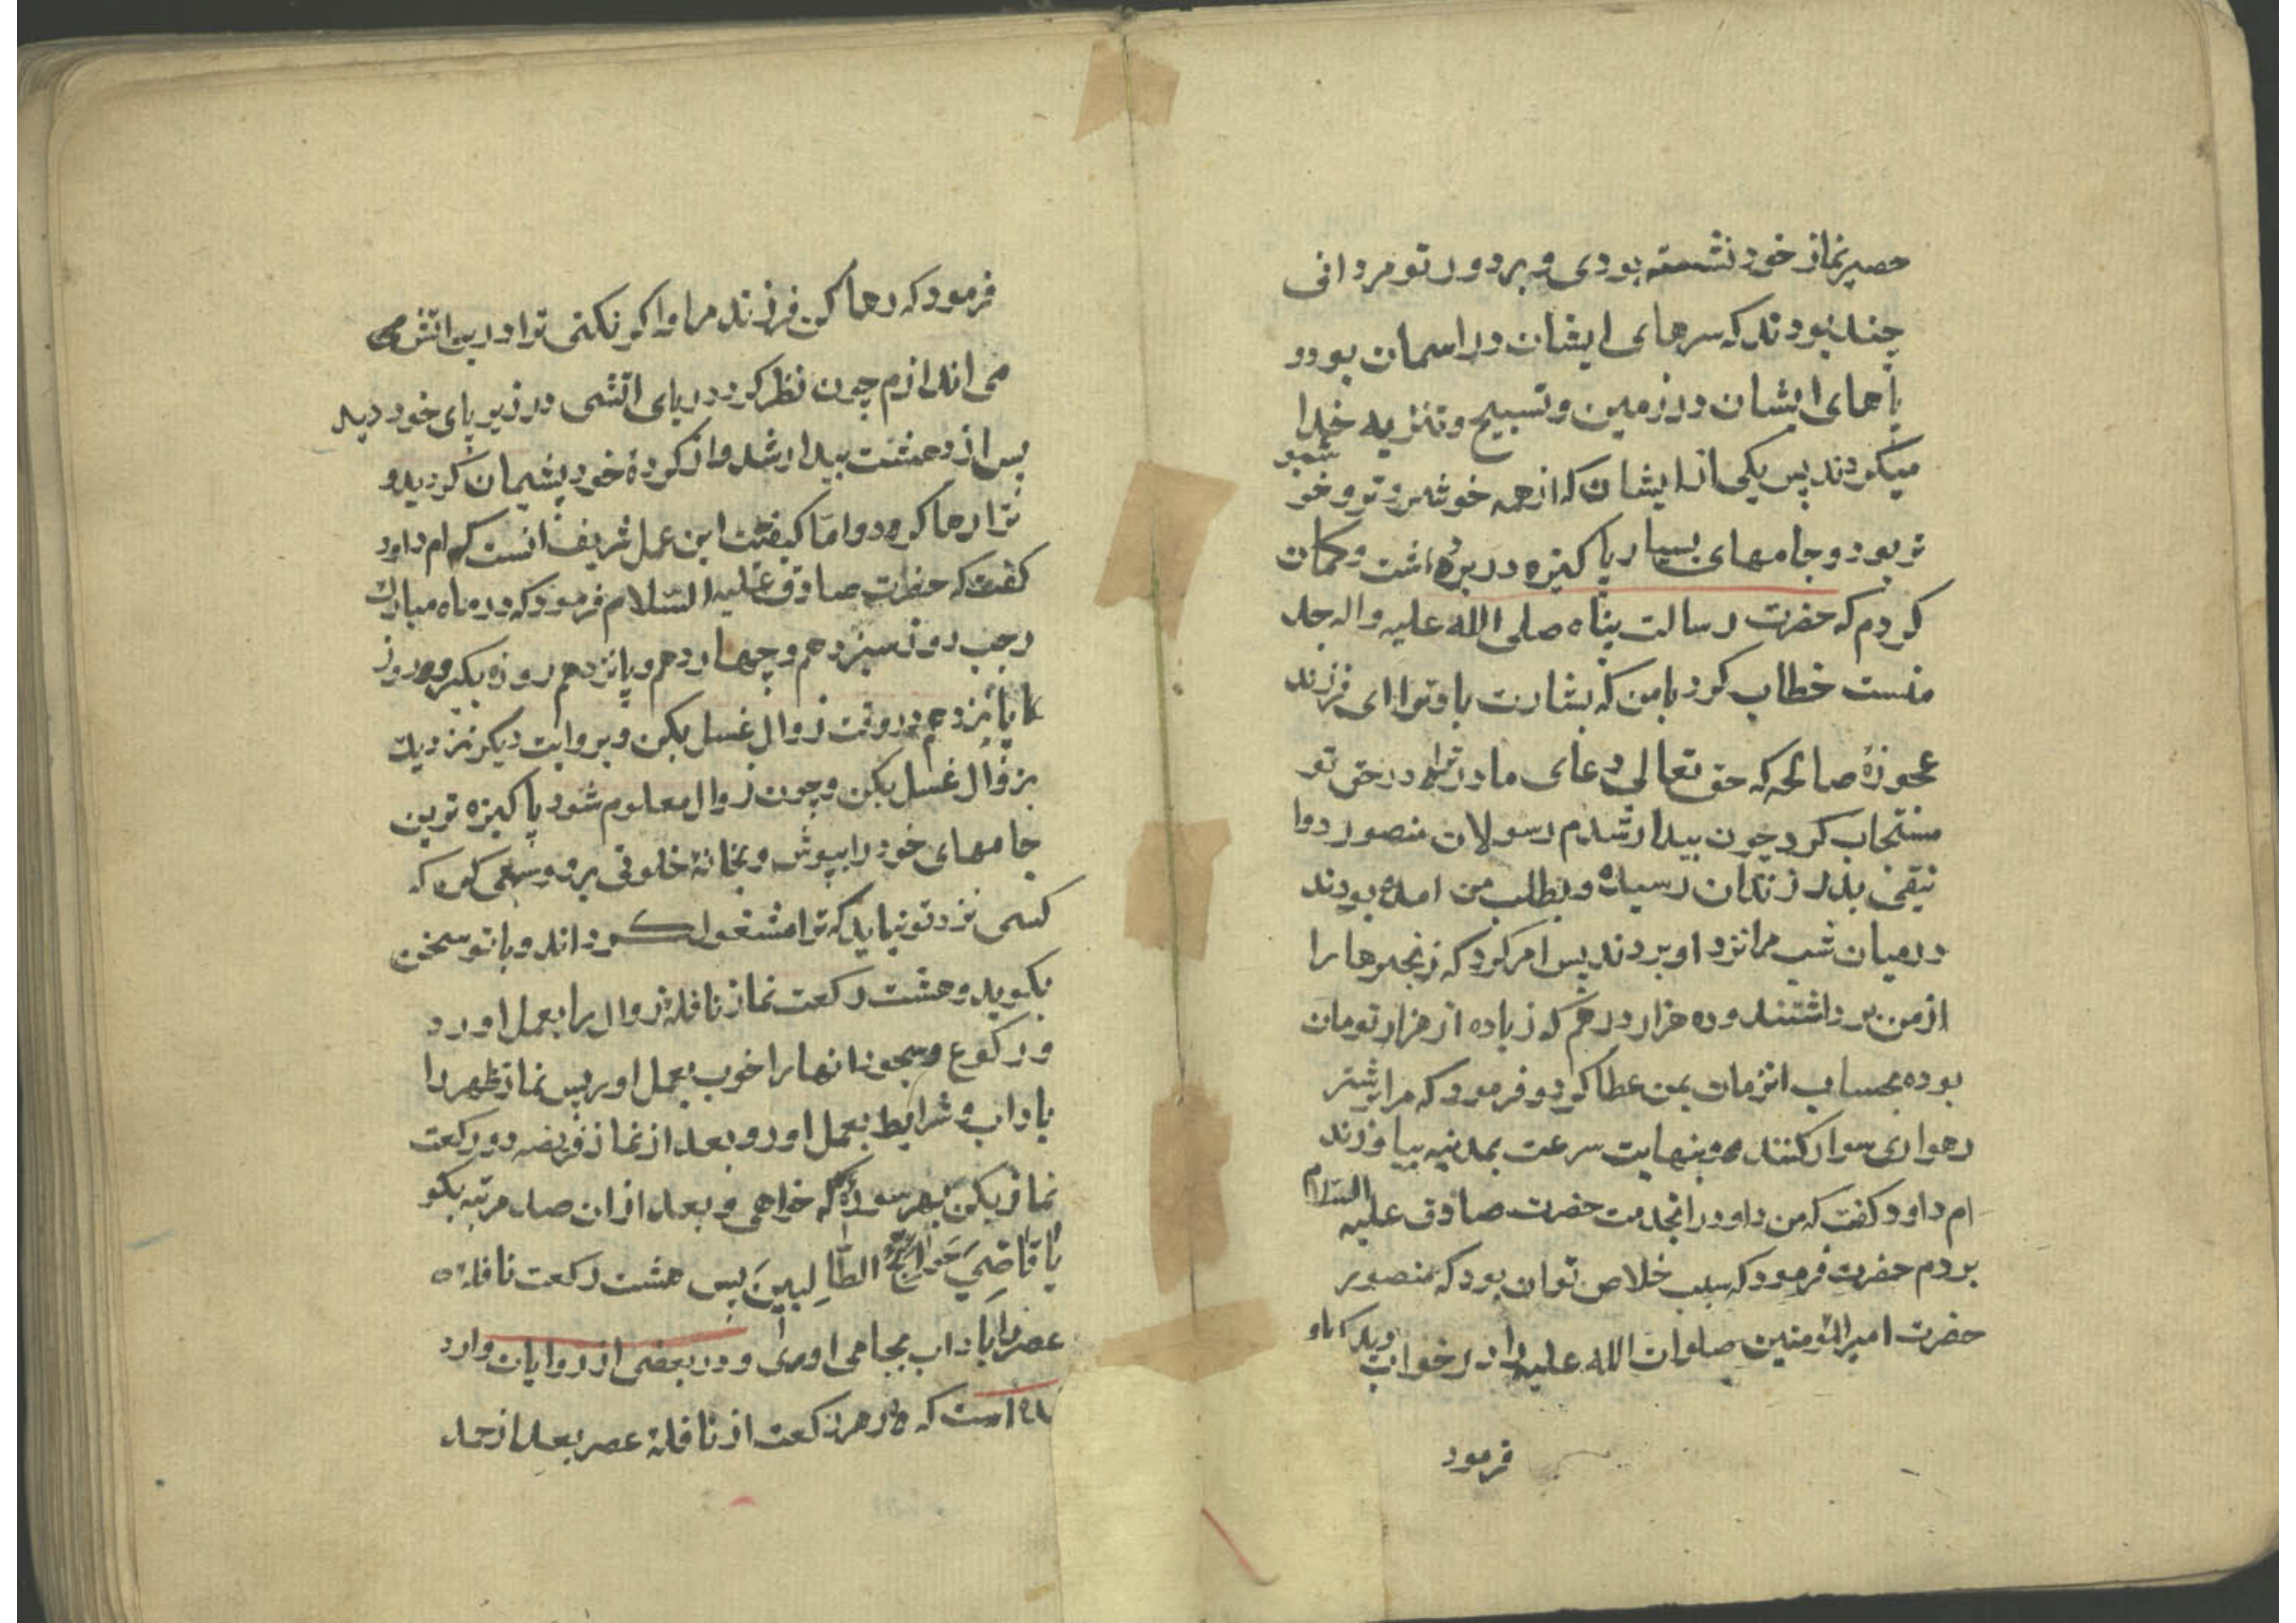 حصیر نماز خود نشسته بودی و بر دور تو مردانی
چند بودند که سرهای ایشان در اسمان بود و
پاهای ایشان در زمین و تسبیح و تنزیه خدا
میکردند پس یکی از ایشان که از همه خوشروتر و خوشبو
تر بود و جامهای بسیار پاکیزه در بر داشت و کمان
کردم که حضرت رسالت پناه صلی الله علیه واله جد
منست خطاب کرد بامن که بشارت باد ترا ای فرزند
عجوزهٔ صالحه که حق تعالی دعای مادر ترا در حق تو
مستجاب کرد چون بیدار شدم رسولان منصور دوا
نیقی بدر زندان رسیده و بطلب من امده بودند
در میان شب مرا نزد او بردند پس امر کرد که زنجیرها را
از من برداشتند و ده هزار درهم که زیاده از هزار تومان
بوده بحساب انزمان بمن عطا کرد و فرمود که مرا بر شتر
رهواری سوار کنند و بنهایت سرعت بمدینه بیاورند
ام داود کفت که من داود را بخدمت حضرت صادق علیه السلام
بردم حضرت فرمود که سبب خلاص تو ان بود که منصور
حضرت امیر المؤمنین صلوات الله علیه را در خواب دید که باو
فرمود
فرمود که رها کن فرزند مرا و اکر نکنی ترا در اتش
می اندازم چون نظر کرد دریای اتشی در زیر پای خود دید
پس از دهشت بیدار شد و از کردهٔ خود پشیمان کردید و
ترا رها کرد و اما کیفیت این عمل شریف انست که ام داود
کفت که حضرت صادق علیه السلام فرمود که در ماه مبارک
رجب روز سیزدهم و چهاردهم و پانزدهم روزه بکیر و در روز
پانزدهم در وقت زوال غسل بکن و بروایت دیکر نزدیک
بزوال غسل بکن و چون زوال معلوم شود پاکیزه ترین
جامهای خود را بپوش و بخانهٔ خلوتی برو و سعی کن که
کسی نزد تو نیاید که ترا مشغول کرداند و باتو سخن
بکوید و هشت رکعت نماز نافلهٔ زوال را بعمل اور و
رکوع و سجود انها را خوب بعمل اور پس نماز ظهر را
باداب و شرایط بعمل اور و بعد از نماز فریضه دو رکعت
نماز بکن بهر سوره که خواهی و بعد از ان صد مرتبه بکو
یا قاضی حوائج الطالبین پس هشت رکعت نافله
عصر را باداب بجا می اوری و در بعضی از روایات وارد
است که در هر رکعت از نافلهٔ عصر بعد از حمد